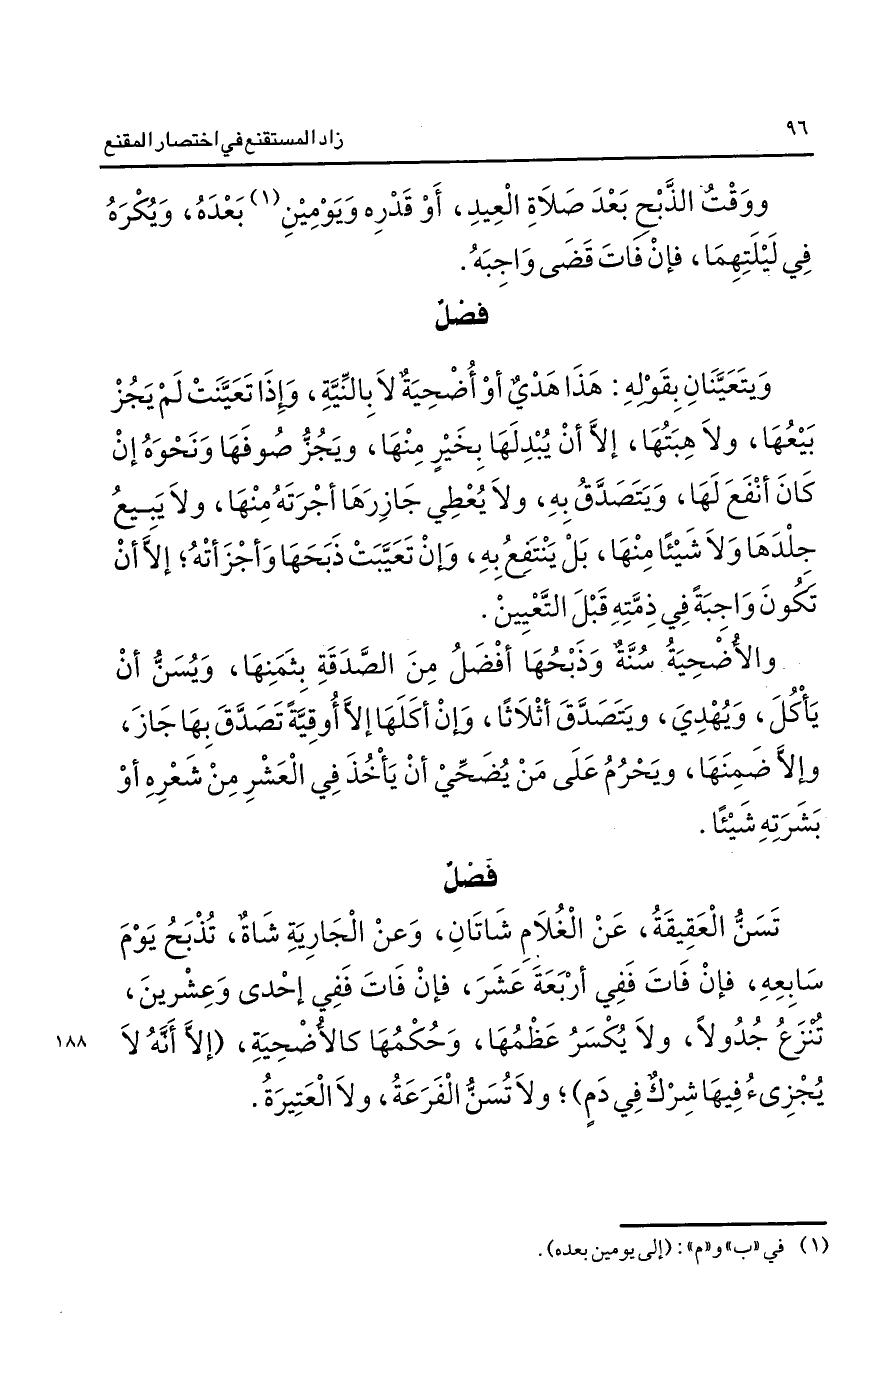 ٩٦
زاد المستقنع في اختصار المقنع
ووَقْتُ الذَّبْحِ بَعْدَ صَلاَةِ الْعِيدِ، أَوْ قَدْرِه وَيَوْمِيْنِ(١) بَعْدَهُ، وَيُكْرَهُ
فِي لَيْلَتِهِمَا، فإنْ فَاتَ قَضَى وَاجِبَهُ.
فصْلٌ
وَيتَعَيَّنَانِ بِقَوْلِهِ: هَذَا هَدْيٌ أوْ أُضْحِيَةٌ لاَ بِالنِّيَّةِ، وَإِذَا تَعَيَّنَتْ لَمْ يَجُزْ
بَيْعُهَا، ولاَ هِبَتُهَا، إلاَّ أنْ يُبْدِلَهَا بِخَيْرٍ مِنْهَا، ويَجُزُّ صُوفَهَا وَنَحْوَهُ إنْ
كَانَ أنْفَعَ لَهَا، وَيَتَصَدَّقُ بِهِ، ولاَ يُعْطِي جَازِرَهَا أجْرَتَهُ مِنْهَا، ولاَ يَبِيعُ
جِلْدَهَا وَلاَ شَيْئًا مِنْهَا، بَلْ يَنْتَفِعُ بِهِ، وَإنْ تَعَيَّبَتْ ذَبَحَهَا وَأجْزَأتْهُ؛ إلاَّ أنْ
تَكُونَ وَاجِبَةً فِي ذِمَّتِهِ قَبْلَ التَّعْيِينْ.
والأُضْحِيَةُ سُنَّةٌ وَذَبْحُهَا أفْضَلُ مِنَ الصَّدَقَةِ بِثَمَنِهَا، وَيُسَنُّ أنْ
يَأْكُلَ، وَيُهْدِيَ، ويَتَصَدَّقَ أثْلاَثًا، وَإنْ أكَلَهَا إلاَّ أُوقِيَّةً تَصَدَّقَ بِهَا جَازَ،
وإلاَّ ضَمِنَهَا، ويَحْرُمُ عَلَى مَنْ يُضَحِّيْ أنْ يَأْخُذَ فِي الْعَشْرِ مِنْ شَعْرِهِ أوْ
بَشَرَتِهِ شَيْئًا.
فَصْلٌ
تَسَنُّ الْعَقِيقَةُ، عَنْ الْغُلاَمِ شَاتَانِ، وَعنْ الْجَارِيَةِ شَاةٌ، تُذْبَحُ يَوْمَ
سَابِعِهِ، فإنْ فَاتَ فَفِي أرْبَعَةَ عَشَرَ، فإنْ فَاتَ فَفِي إحْدى وَعِشْرينَ،
تُنْزَعُ جُدُولاً، ولاَ يُكْسَرُ عَظْمُهَا، وَحُكْمُهَا كالأُضْحِيَةِ، (إلاَّ أَنَّهُ لاَ
١٨٨
يُجْزِىءُ فِيهَا شِرْكٌ فِي دَمٍ)؛ ولاَ تُسَنُّ الْفَرَعَةُ، ولاَ الْعَتِيرَةُ.
(١) في «ب» و«م»: (إلى يومين بعده).